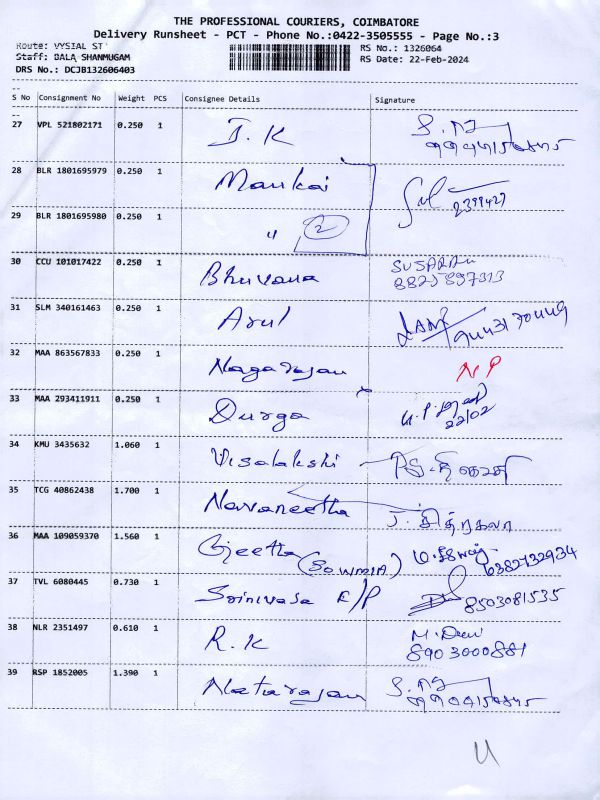 THE PROFESSIONAL COURIERS, COIMBATORE
Delivery Runsheet - PCT - Phone No.:0422-3505555 - Page No.:3
Route: VYSIAL ST RS No.: 1326064
Staff: BALA SHANMUGAM RS Date: 22-Feb-2024
DRS No.: DCJB132606403
S No Consignment No Weight PCS Consignee Details Signature
27 VPL 521802171 0.250 1 J. K
28 BLR 1801695979 0.250 1 2399427
29 BLR 1801695980 0.250 1 " 2
30 CCU 101017422 0.250 1 Bhuvana
31 SLM 340161463 0.250 1 Arul
32 MAA 863567833 0.250 1 Nagarajan NP
33 MAA 293411911 0.250 1 Durga 22/02
34 KMU 3435632 1.060 1 Visalakshi
35 TCG 40862438 1.700 1 Navaneetha J. சித்ரகலா
36 MAA 109059370 1.560 1 Geetha (SOWMIA) 6382732934
37 TVL 6080445 0.730 1 Srinivasa E/P 8503081535
38 NLR 2351497 0.610 1 R. K M. Devi
8903000881
39 RSP 1852005 1.390 1 Natarajan